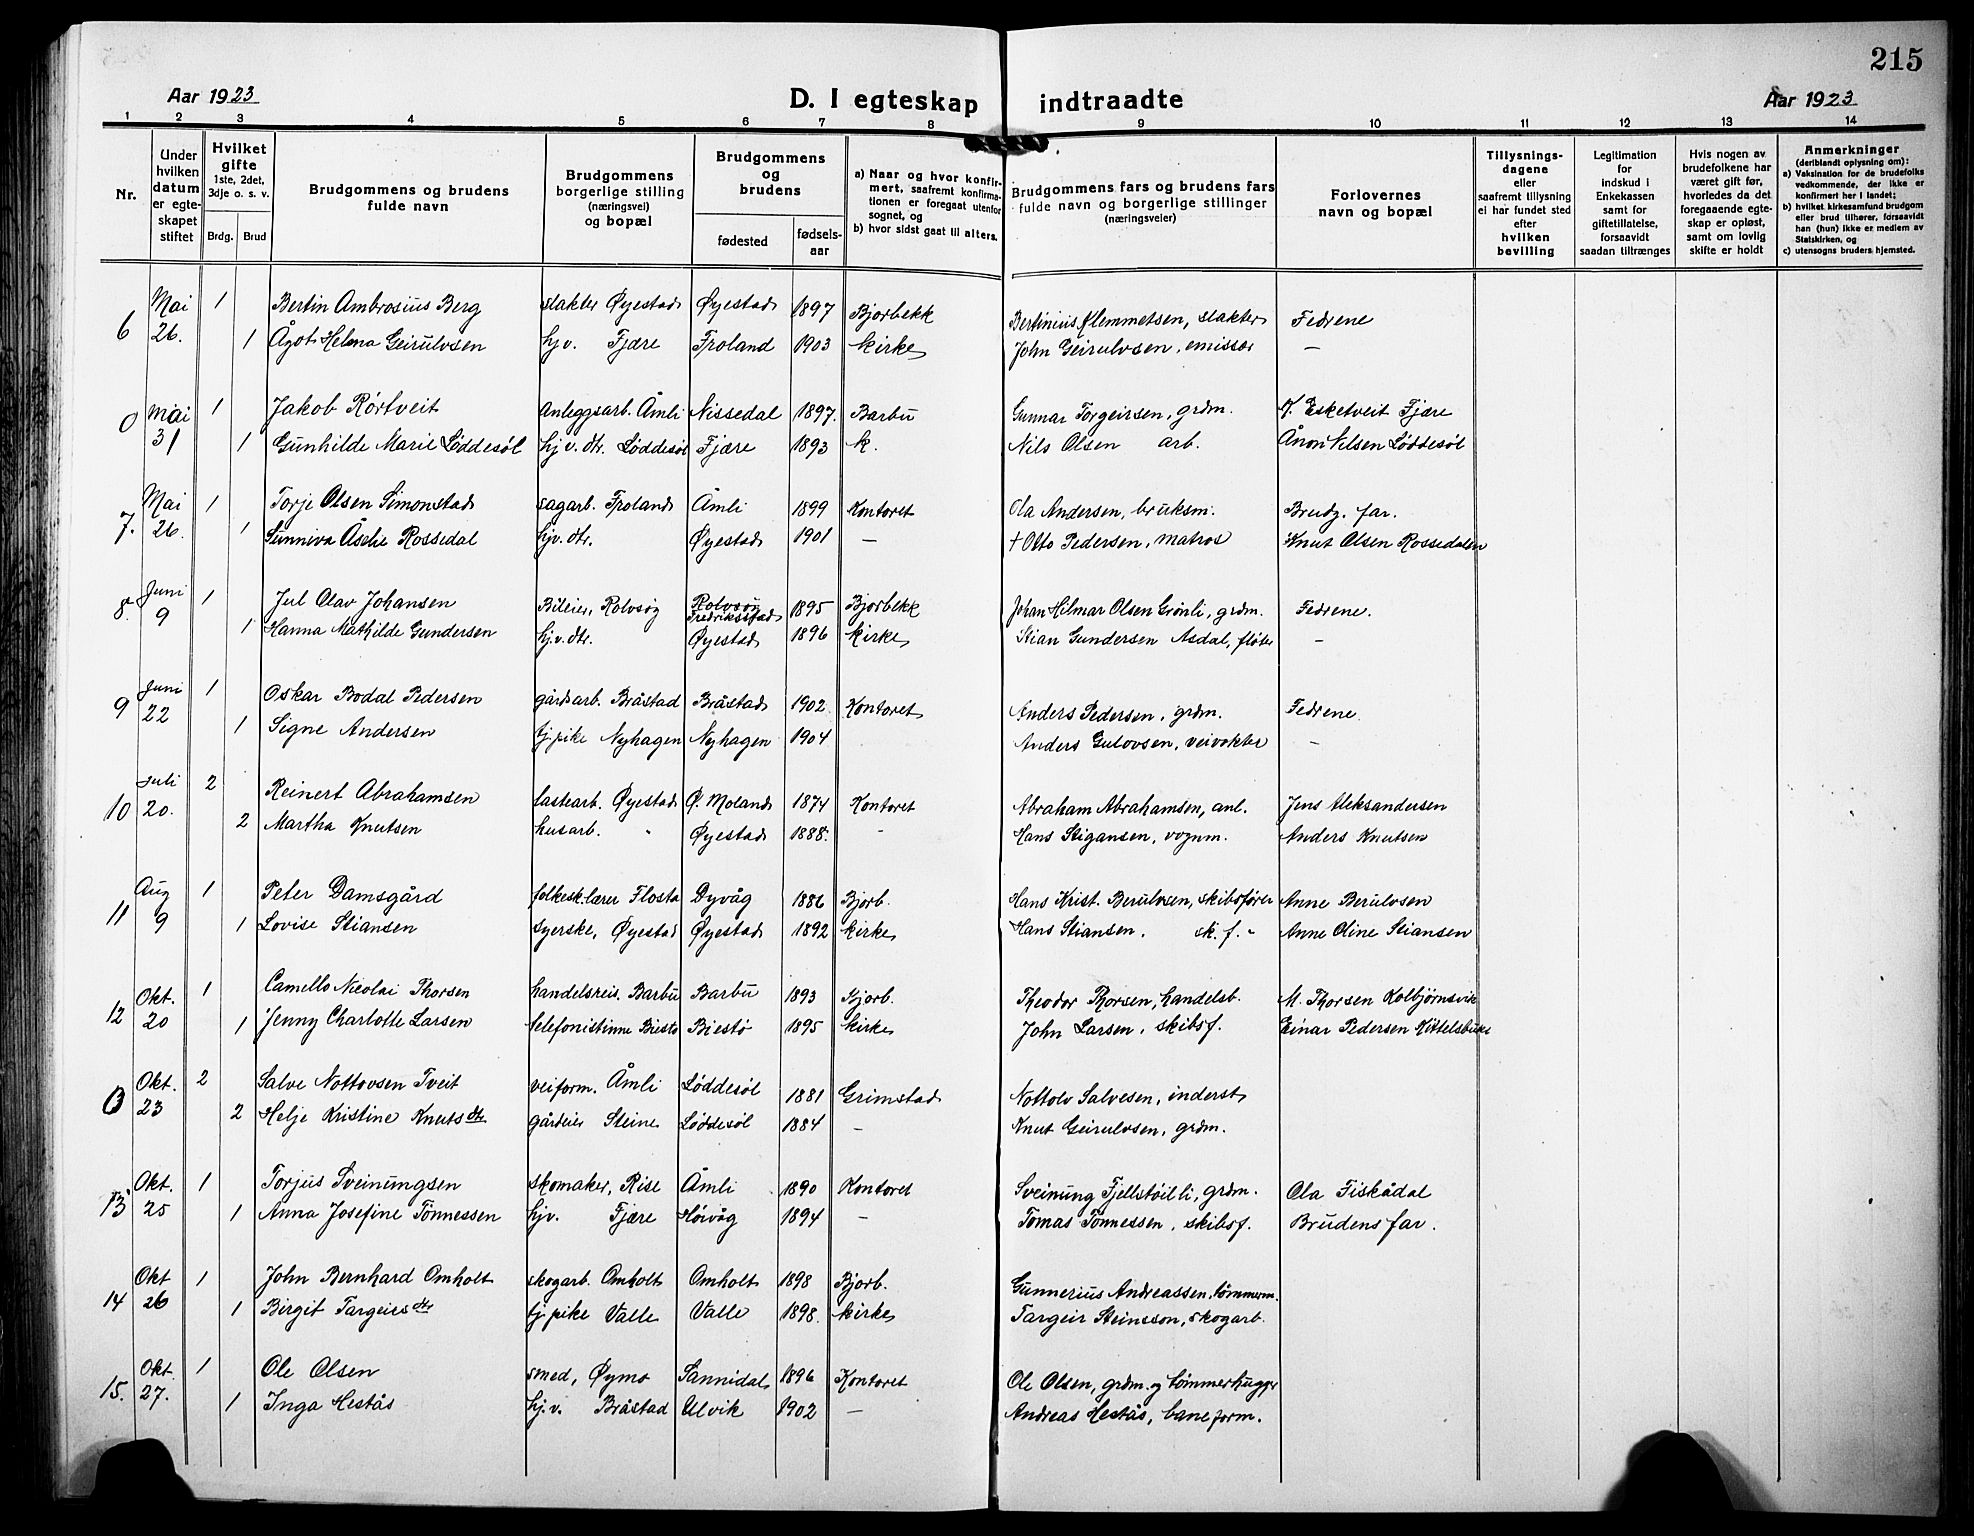 215
Aar 1923 D. I egteskap indtraadte Aar 1923
1 2 3 4 5 6 7 8 9 10 11 12 13 14
Nr.
Under hvilken datum er egteskapet stiftet
Hvilket gifte 1ste, 2det, 3dje o. s. v.
Brdg. Brud
Brudgommens og brudens fulde navn
Brudgommens borgerlige stilling (næringsvei) og bopæl
Brudgommens og brudens
fødested fødselsaar
a) Naar og hvor konfirmert, saafremt konfirmationen er foregaat utenfor sognet, og
b) hvor sidst gaat til alters.
Brudgommens fars og brudens fars fulde navn og borgerlige stillinger (næringsveier)
Forlovernes navn og bopæl
Tillysningsdagene eller saafremt tillysning ei har fundet sted efter hvilken bevilling
Legitimation for indskud i Enkekassen samt for giftetillatelse, forsaavidt saadan tiltrænges
Hvis nogen av brudefolkene har været gift før, hvorledes da det foregaaende egteskap er opløst, samt om lovlig skifte er holdt
Anmerkninger (deriblandt oplysning om):
a) Vaksination for de brudefolks vedkommende, der ikke er konfirmert her i landet;
b) hvilket kirkesamfund brudgom eller brud tilhører, forsaavidt han (hun) ikke er medlem av Statskirken, og
c) utensogns bruders hjemsted.
6 Mai 26. 1 Bertin Ambrosius Berg slakter Øyestad Øyestad 1897 Bjorbekk Bertinius Klemmetsen, slakter Fedrene
1 Ågot Helena Geirulvsen hjv. Fjære Froland 1903 kirke John Geirulvsen, emissær —
0 Mai 31 1 Jakob Rørtveit Anleggsarb. Åmli Nissedal 1897. Barbu Gunnar Torgeirsen, grdm. K. Esketveit Fjære
1 Gunhilde Marie Løddesøl hjv. dtr. Løddesøl Fjære 1893 k. Nils Olsen arb. Ånon Nilsen Løddesøl
7. Mai 26. 1 Torje Olsen Simonstad sagarb. Froland Åmli 1899 Kontoret Ola Andersen, bruksm. Brudg. far.
1 Sunniva Åselie Rossedal hjv. dtr. Øyestad 1901 — + Otto Pedersen, matros Knut Olsen Rossedalen
8. Juni 9 1 Jul Olav Johansen Bileier, Rolvsøy Rolvsøy Fredriksstad 1895 Bjorbekk Johan Hilmar Olsen Grønli, grdm. Fedrene.
1 Hanna Mathilde Gundersen hj.v. dtr. Øyestad 1896 kirke Stian Gundersen Asdal, fløter —
9 Juni 22 1 Oskar Bodal Pedersen gårdsarb. Bråstad Bråstad 1902 Kontoret Anders Pedersen, grdm. Fedrene.
1 Signe Andersen tj.pike Nyhagen Nyhagen 1904 Anders Gulovsen, veivokter —
10 Juli 20. 2 Reinert Abrahamsen lastearb. Øyestad Ø. Moland 1874 Kontoret Abraham Abrahamsen, anl. Jens Aleksandersen
2 Martha Knutsen husarb. " Øyestad 1888. - Hans Stigansen, vognm. Anders Knutsen
11 Aug 9 1 Peter Damsgård folkesk.lærer Flosta Dyvåg 1886 Bjorb. Hans Krist. Berulvsen, skibsfører Anne Berulvsen
1 Lovise Stiansen syerske, Øyestad Øyestad 1892 kirke Hans Stiansen, sk. f. - Anne Oline Stiansen
12 Okt. 20 1 Camello Nicolai Thorsen handelsreis. Barbu Barbu 1893 Bjorb. Theodor Thorsen, handelsb. M. Thorsen Kolbjørnsvik
1 Jenny Charlotte Larsen telefonistinne Biestø Biestø 1895 kirke John Larsen, skibsf. Einar Pedersen Kittelsbukt
0 Okt. 23 2 Salve Nottovsen Tveit veiform. Åmli Løddesøl 1881 Grimstad Nottolv Salvesen, inderst
2 Helje Kristine Knutsdtr gårdeier Steine Løddesøl 1884 — Knut Geirulvsen, grdm.
13 Okt. 25 1 Torjus Sveinungsen skomaker, Rise Åmli 1890 Kontoret Sveinung Fjellstøilli, grdm. Ola Fiskådal
1 Anna Josefine Tønnessen hjv. Fjære Høivåg 1894 — Tomas Tønnessen, skibsf. Brudens far.
14 Okt 26 1 John Bernhard Omholt skogarb. Omholt Omholt 1898 Bjorb. Gunnerius Andreassen, tømmerm.
1 Birgit Targeirsdtr tj.pike Valle Valle 1898. kirke Targeir Steinsson, skogarb.
15. Okt. 27. 1 Ole Olsen smed, Øymo Sannidal 1896 Kontoret Ole Olsen, grdm. og tømmerhugger
1 Inga Hestås hj.v. Bråstad Ulvik 1902 — Andreas Hestås, baneform.